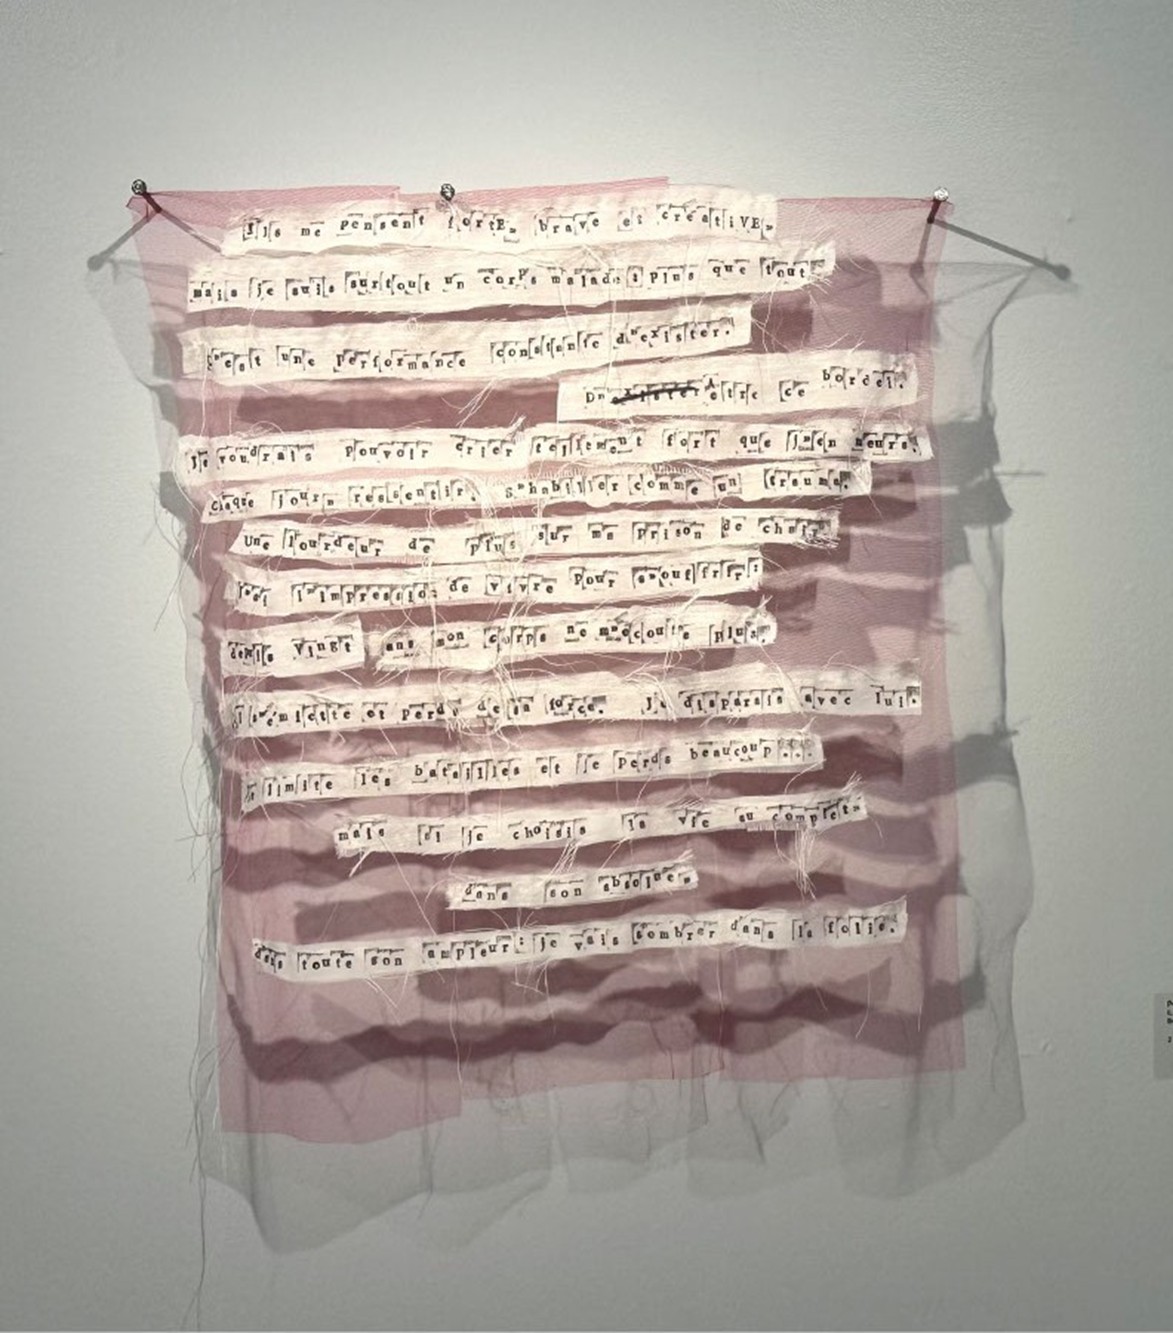 Ils me pensent fortE, brave et créatiVE,
mais je suis surtout un corps malade : plus que tout,
c'est une performance constante d'exister.
D'e̶x̶i̶s̶t̶e̶r̶ être ce bordel.
Je voudrais pouvoir crier tellement fort que j'en meurs.
Chaque jour ressentir, s'habiller comme un trauma.
Une lourdeur de plus sur ma prison de chair,
j'ai l'impression de vivre pour souffrir :
depuis vingt ans mon corps ne m'écoute plus,
il s'émiette et perd de sa force. Je disparais avec lui.
limite les batailles et je perds beaucoup...
mais si je choisis la vie au complet,
dans son absolue,
dans toute son ampleur : je vais sombrer dans la folie.